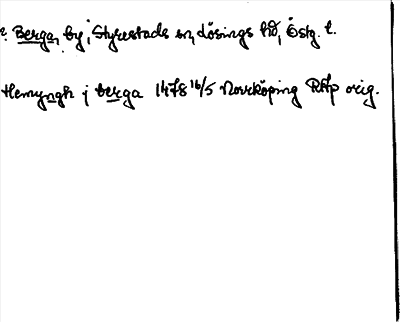 Berga, by, Styrestads sn, Lösings hd, Östg. l.
Hemyngh j berga 1478 16/5 Norrköping RAp orig.